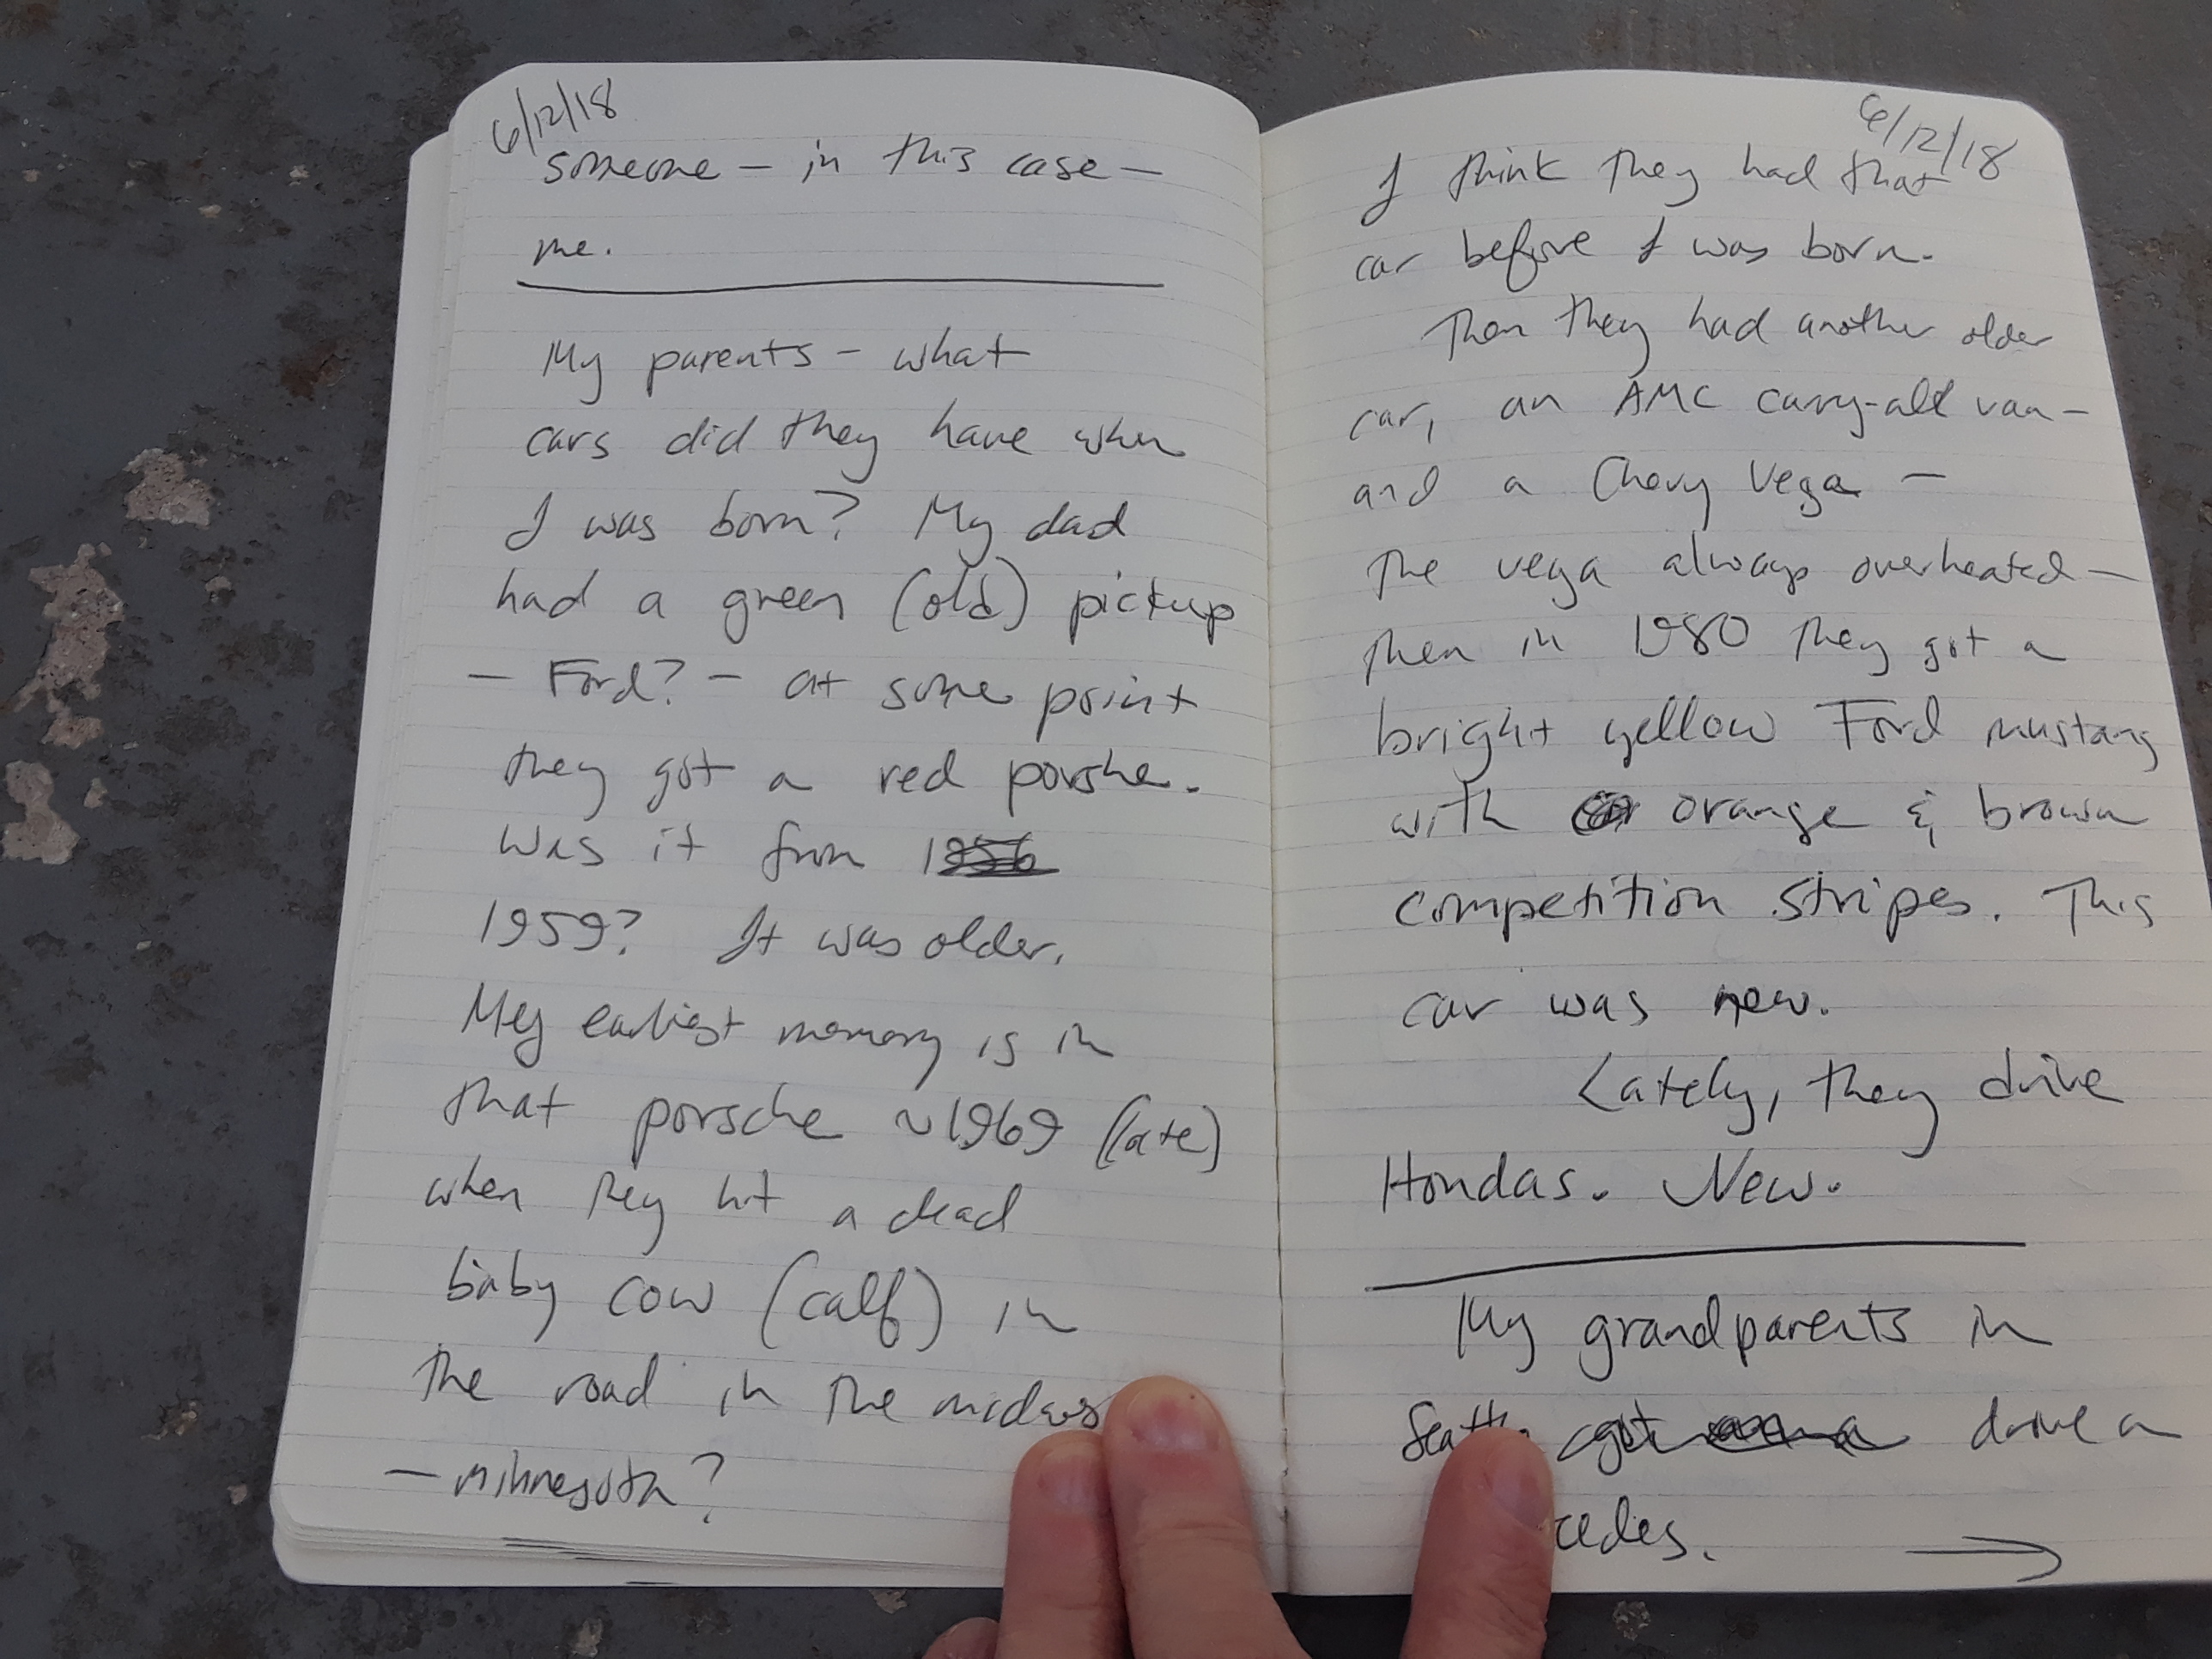 6/12/18
someone – in this case –
me.
My parents – what
cars did they have when
I was born? My dad
had a green (old) pickup
– Ford? – at some point
they got a red porshe.
Was it from 1956
1959? It was older.
My earliest memory is in
that porsche ~1969 (late)
when they hit a dead
baby cow (calf) in
the road in the
– minnesota?
6/12/18
I think they had that
car before I was born.
Then they had another older
car, an AMC carry-all van –
and a Chevy Vega –
The vega always overheated –
then in 1980 they got a
bright yellow Ford mustang
with orange & brown
competition stripes. This
car was new.
Lately, they drive
Hondas. New.
My grandparents in
drive a